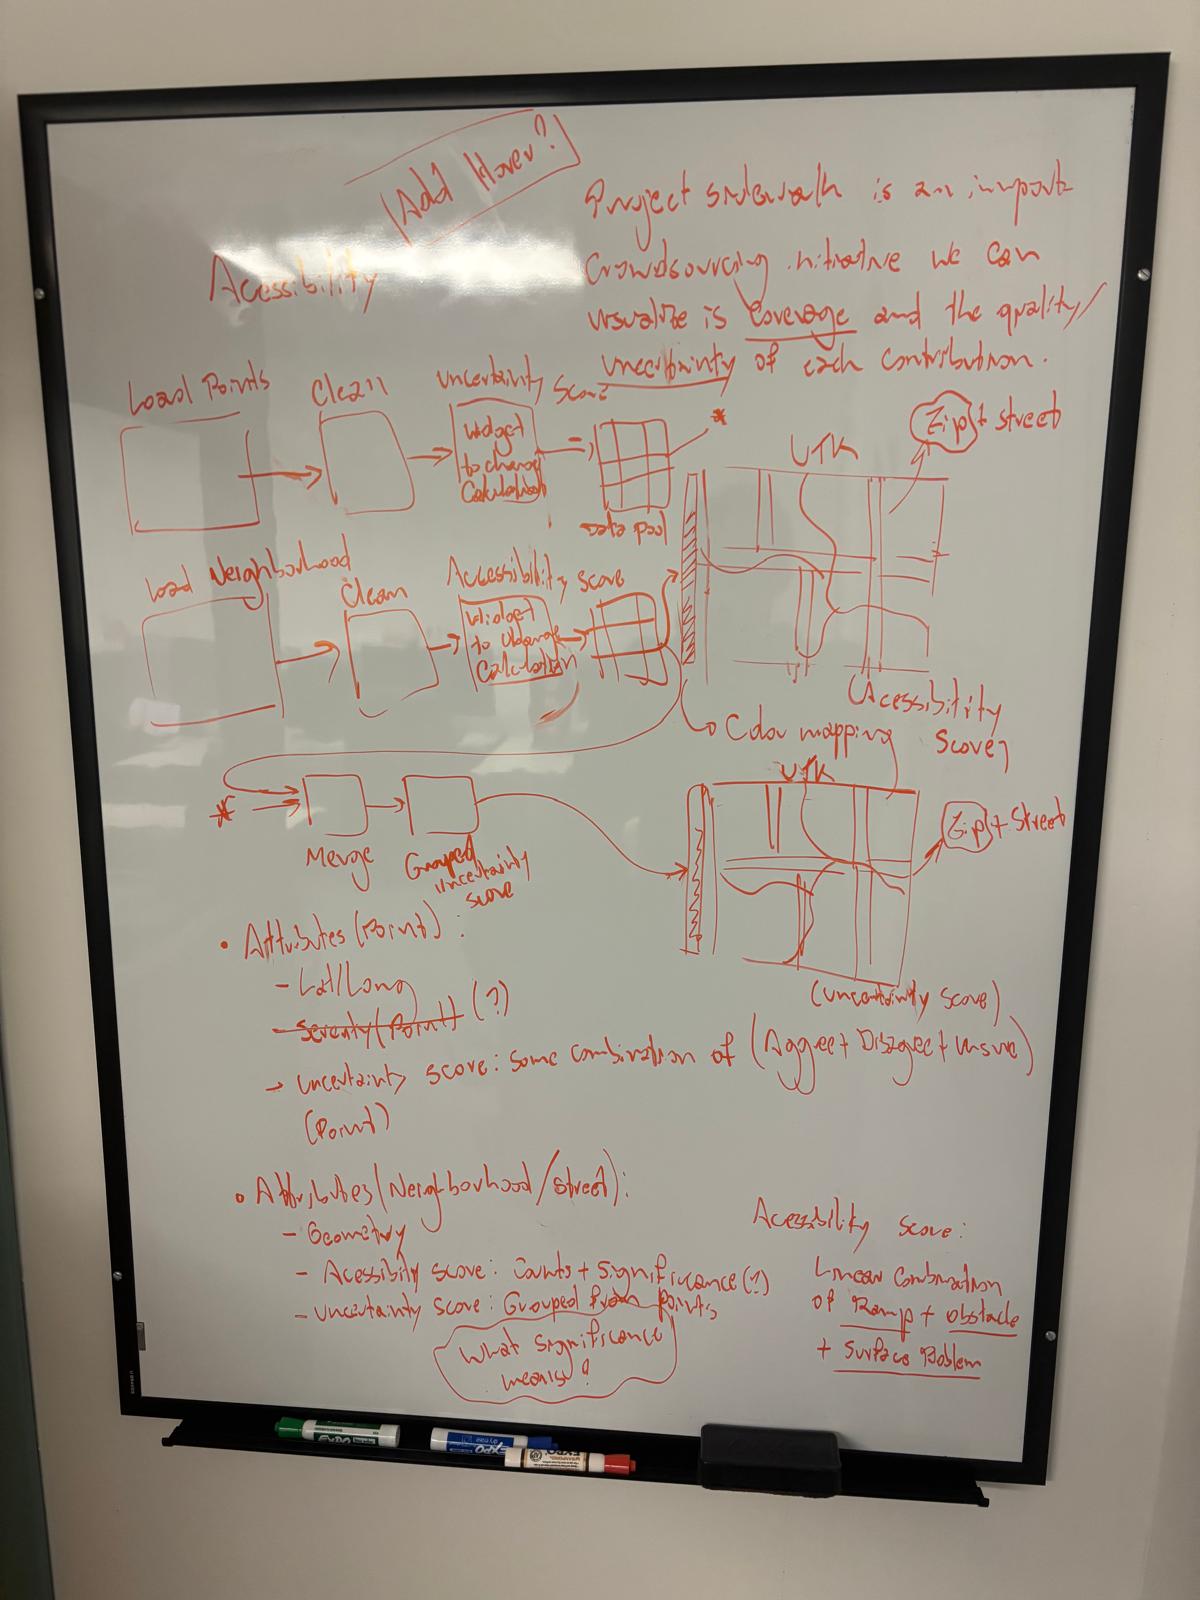 Add Hover?
Acessibility
Project sidewalk is an import
Crowdsourcing initiative we can
visualize is coverage and the quality/
uncertainty of each contribution.
Load Points
Clean
Uncertainty Score
Widget
to change
Calculation
Data pool
*
UTK
Zip + street
Load Neighborhood
Clean
Accessibility score
Widget
to change
Calculation
(Acessibility
Score)
Color mapping
*
Merge
Grouped
uncertainty
score
UTK
Zip + Street
(uncertainty score)
• Attributes (Point) :
- Lat/Long
- Severity (Point) (?)
→ uncertainty score: some combination of (Aggree + Disagree + unsure)
(Point)
• Attributes (Neighborhood/street):
- Geometry
- Acessibity score: Counts + Significance (?)
- uncertainty score: Grouped from points
What significance
means?
Acessibility score:
Linear Combination
of Ramp + obstacle
+ Surface Problem
EXPO
EXPO